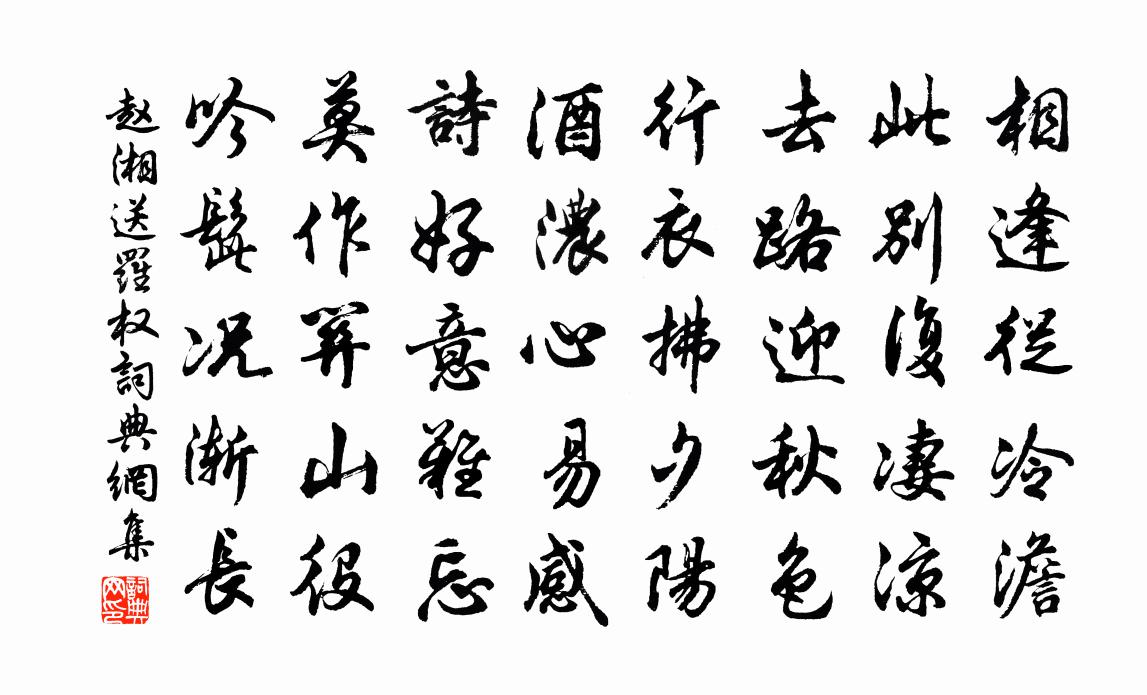 相逢従冷澹
此别復凄凉
去路迎秋色
行衣拂夕陽
酒濃心易感
詩好意難忘
莫作羿山役
吟髭况漸長
赵湘送羅权詞典網集
詞典
网印